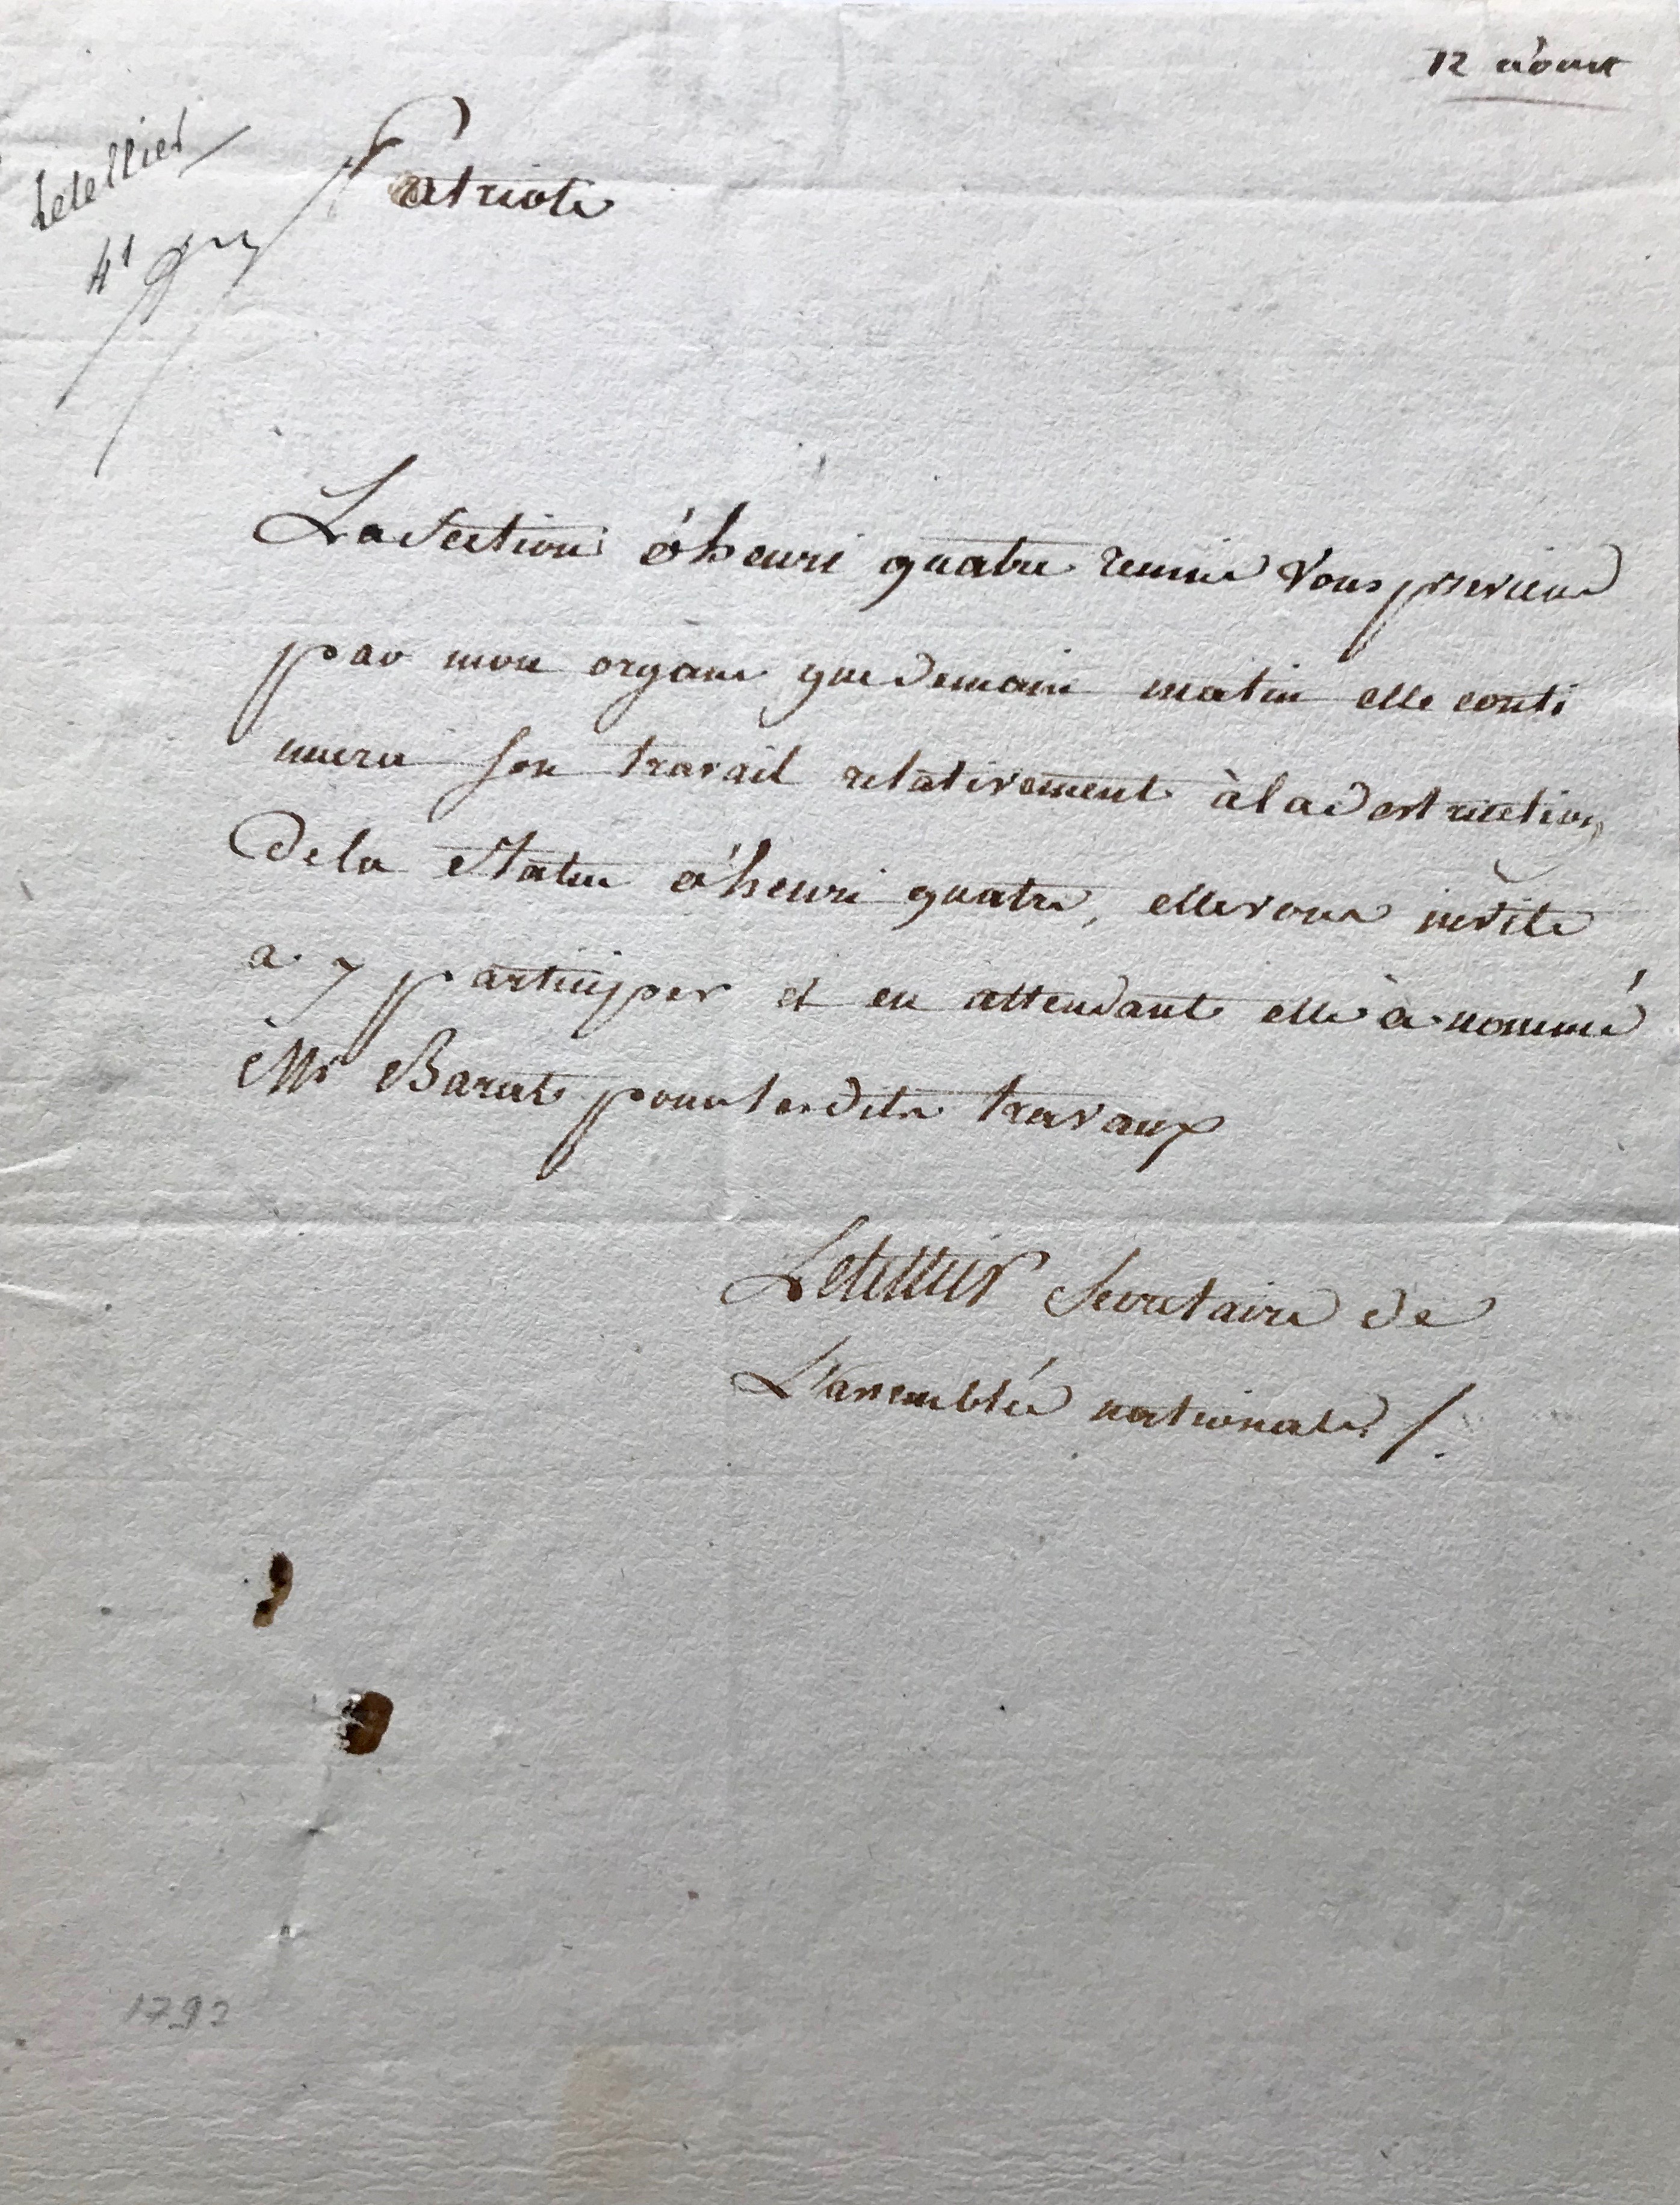 12 aoust
Letellier
Patriote
La Section d'henri quatre reunie Vous previens
par mon organe que demain matin elle conti
nuera son travail relativement à la destruction
De la Statue d'henri quatre, elle vous invite
a y participer et en attendant elle à nommé
Mr Barate pour les dits travaux
Letellier Secretaire de
L'assemblée nationale /.
1792